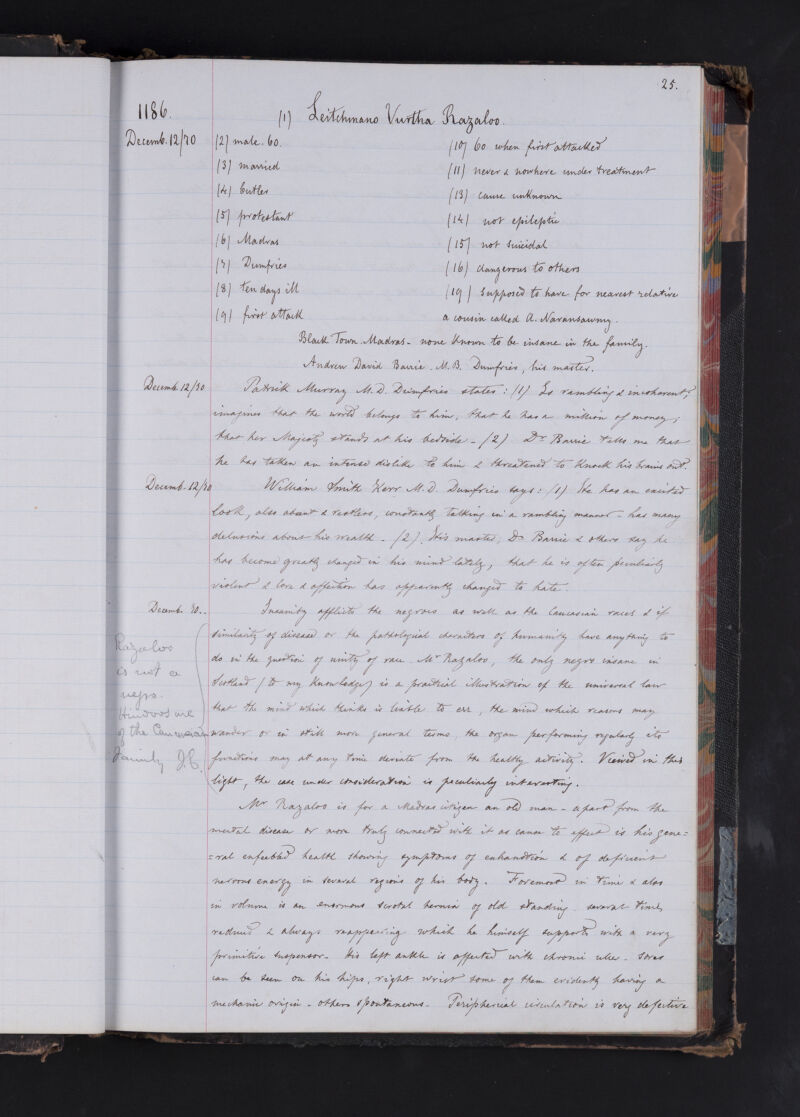 25.
1186.
(1) Leitchmano Vurtha Razaloo.
Decemb. 12/70
(2) male. 60.
(3) married
(4) Cutler
(5) protestant
(6) Madras
(7) Dumfries
(8) ten days ill
(9) first attack
(10) 60 when first attacked
(11) never & nowhere under treatment
(13) cause unknown
(14) not epileptic
(15) not suicidal
(16) dangerous to others
(19) Supposed to have for nearest relative
a cousin called A. Naransawmy.
Black Town. Madras - none known to be insane in the family.
Andrew David Barrie. M.B. Dumfries, his master.
Decemb. 12/70
Patrick Murray M.D. Dumfries states: (1) Is rambling & incoherent,
imagines that the world belongs to him, that he has a million of money,
that her Majesty stands at his bedside - (2) Dr Barrie tells me that
he has taken an intense dislike to him & threatened to knock his brains out.
Decemb. 12/70
William Smith Kerr M.D. Dumfries says: (1) He has an excited
look, also absent & restless, constantly talking in a rambling manner - has many
delusions about his wealth - (2). His master, Dr Barrie & others say he
has become greatly changed in his mind lately, that he is often peculiarly
violent & love & affection has apparently changed to hate.
Decemb. 70..
Insanity afflicts the negroes as well as the Caucasian races & if
similarity of disease or the pathological characters of humanity have anything to
do in the question of unity of race. Mr Razaloo, the only negro insane in
Scotland (to my knowledge) is a practical illustration of the universal law
that the mind which thinks is liable to err, the mind which reasons may
wander or in still more general terms, the organ performing regularly its
functions may at any time deviate from the healthy activity. Viewed in this
light, the case under consideration is peculiarly interesting.
Razaloo
is not a
negro.
Hindoos are
of the Caucasian
Family J.C.
Mr Razaloo is for a Madras citizen an old man - apart from the
mental disease or more truly connected with it as cause to effect is his gene=
=ral enfeebled health showing symptoms of exhaustion & of deficient
nervous energy in several regions of his body. Foremost in time & also
in volume is an enormous scrotal hernia of old standing several times
reduced & always reappearing which he himself supports with a very
primitive suspensor. His left ankle is affected with chronic ulcer. Sores
can be seen on his hips, right wrist some of them evidently having a
mechanic origin - others spontaneous. Peripherical circulation is very defective